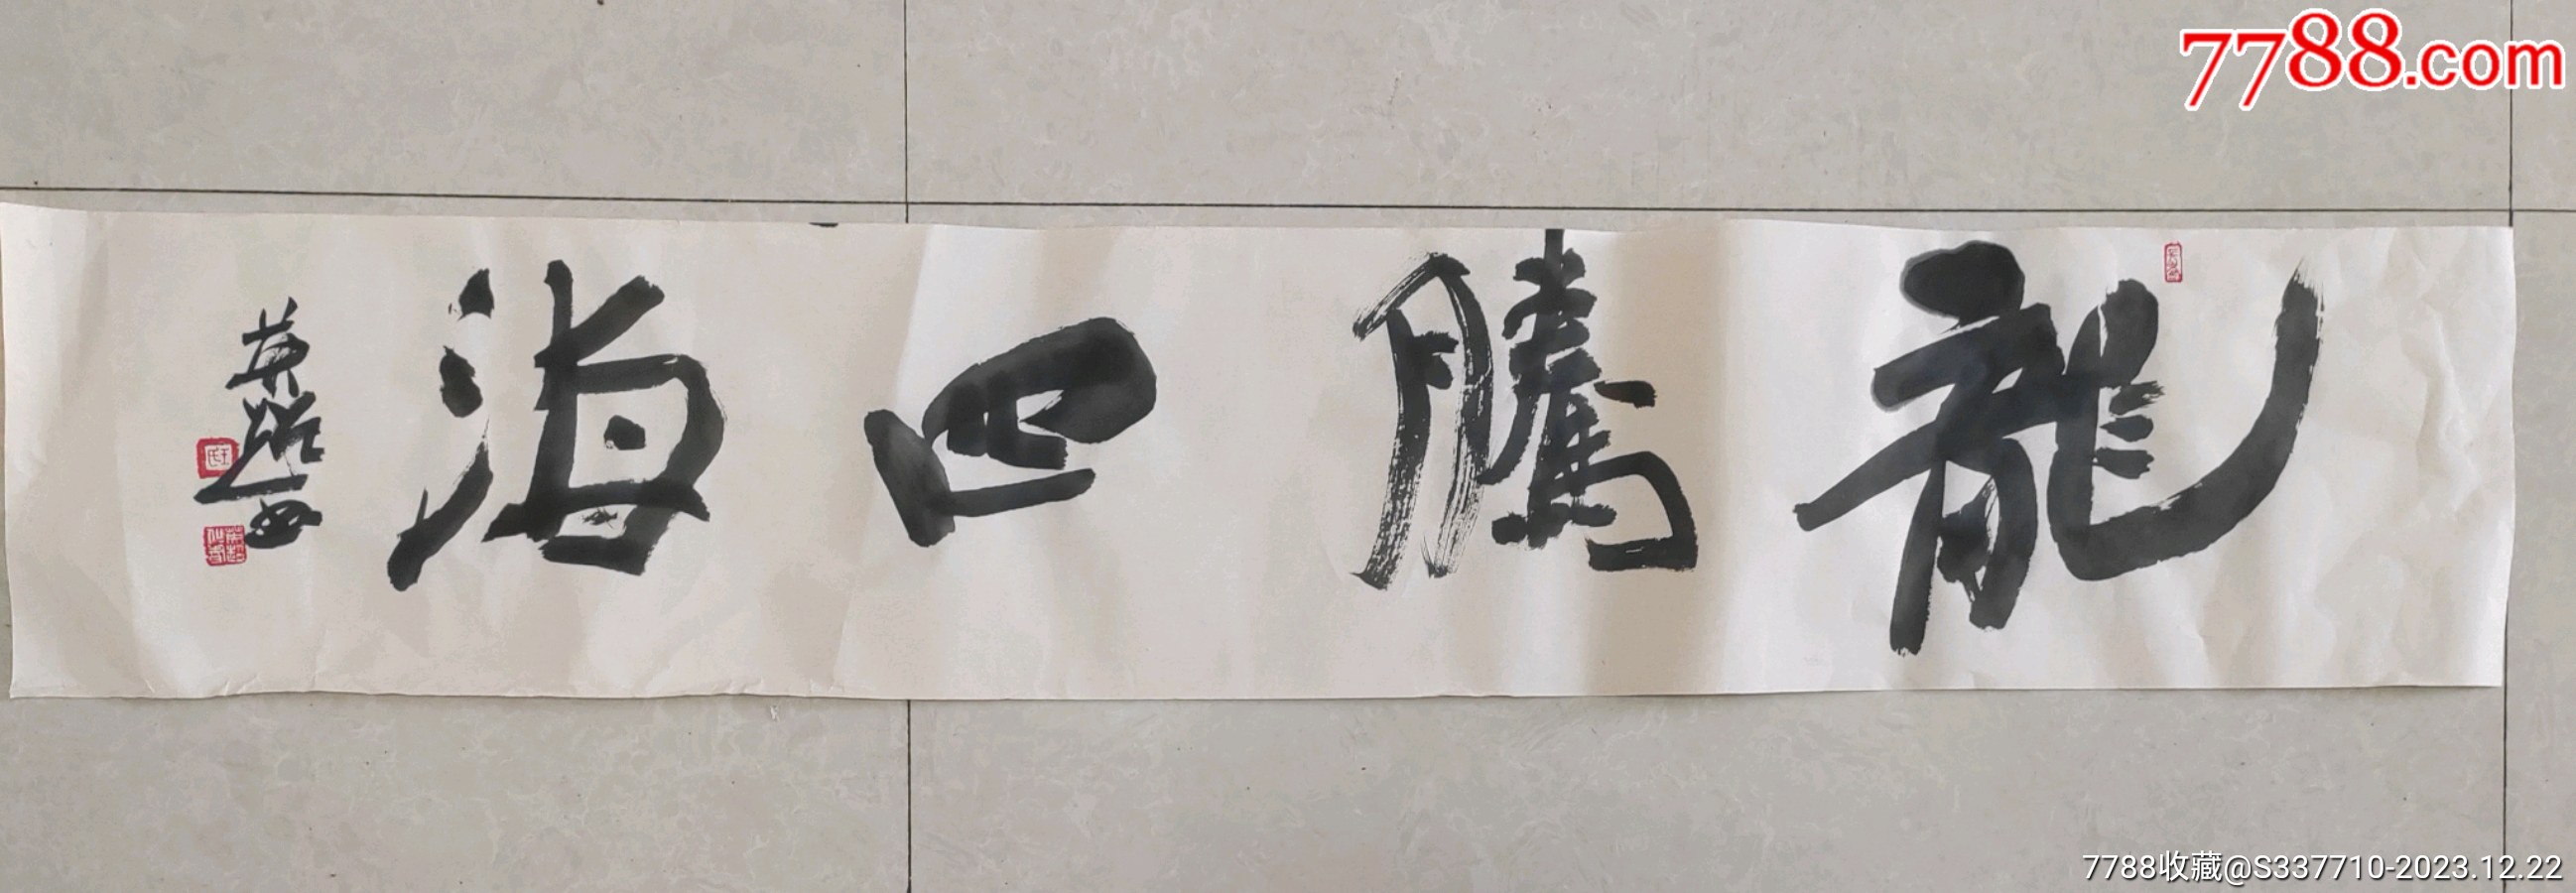 7788.com
龍騰四海
英超書
7788收藏@S337710-2023.12.22